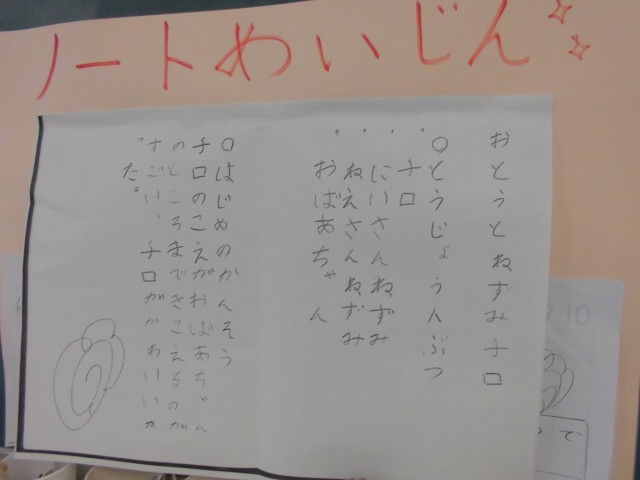 ノートめいじん
おとうとねずみチロ
○とうじょう人ぶつ
・チロ
・にいさんねずみ
・ねえさんねずみ
・おばあちゃん
○はじめのかんそう
チロのこえがおばあちゃん
のところまできこえるのが
すごい、チロがかわいいか
った。